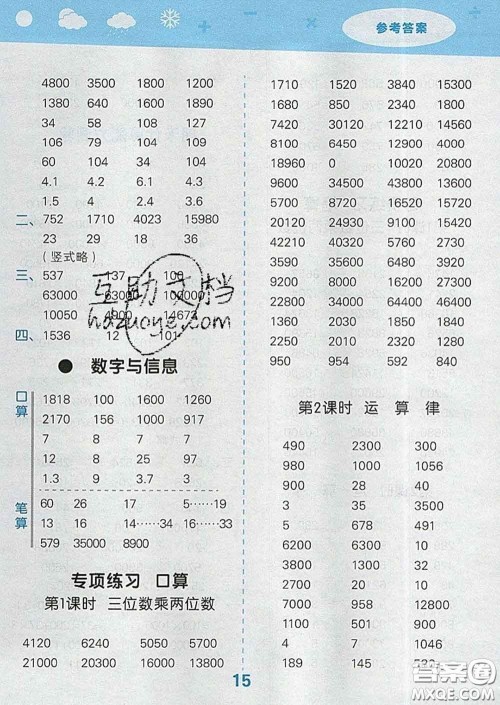 参考答案
4800 3500 1800 1200
1380 640 1600 1890
34 58 108 127
106 79 104 109
60 104 34 104
4.1 4.2 6.1 4.3
1.5 4 2.4 3.6
二、 752 1710 4023 15980
23 29 18 36
(竖式略)
三、 537 137 100
63000 63000 100000
10050 4900 14673
四、 1536 12 101
● 数字与信息
口算 1818 100 1600 1260
2170 156 1000 917
7 8 7 7
12 8 25 97
1.3 9 3.7 3
笔算 60 26 17 5……19
13 16 14……34 16……33
579 35000 8900
专项练习 口算
第1课时 三位数乘两位数
4120 6240 5050 5700
21000 20300 16000 13800
1710 1520 3840 15300
1680 850 2340 1800
7420 30120 12210 8820
8100 6450 12900 4000
18960 0 10020 20800
9600 34500 43800 13600
5700 8720 16520 12000
20120 24930 9100 15420
42210 40320 5760 2730
10380 45450 5670 3360
9380 10400 8000 10000
1350 12000 14210 6300
2250 2310 9240 1380
950 954 592 840
第2课时 运算律
490 2300 300
980 1000 1056
9000 0 28
3 35 3500
5 678 491
6200 6300 10
3300 10 0
20 10700 2
7000 958 12000
1100 501 900
4 7 1046
189 145 532
15
互助文档
hdzuoye.com
答案圈
MXQE.COM